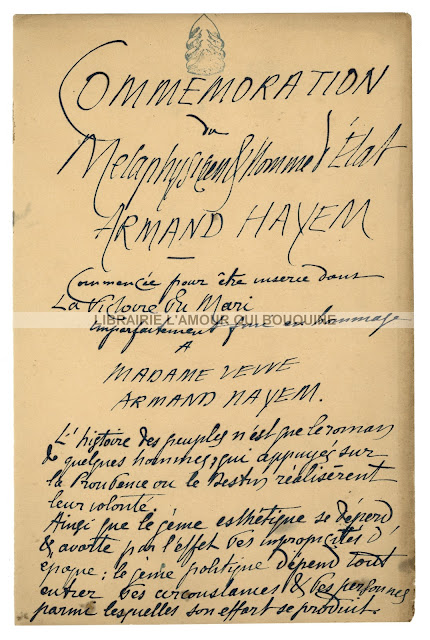 COMMEMORATION
du
Métaphysicien & Homme d'État
ARMAND HAYEM
Commencée pour être inserée dans
La Victoire du Mari
LIBRAIRIE L'AMOUR QUI BOUQUINE
imparfaitement finie en hommage
A
MADAME VEUVE
ARMAND HAYEM.
L'histoire des peuples n'est que le roman
de quelques hommes, qui appuyés sur
la Providence ou le Destin réalisèrent
leur volonté.
Ainsi que le génie esthétique se déperd
& avorte par l'effet des impropicités d'
époque; le génie politique dépend tout
entier des circonstances & des personnes
parmi lesquelles son effort se produit.